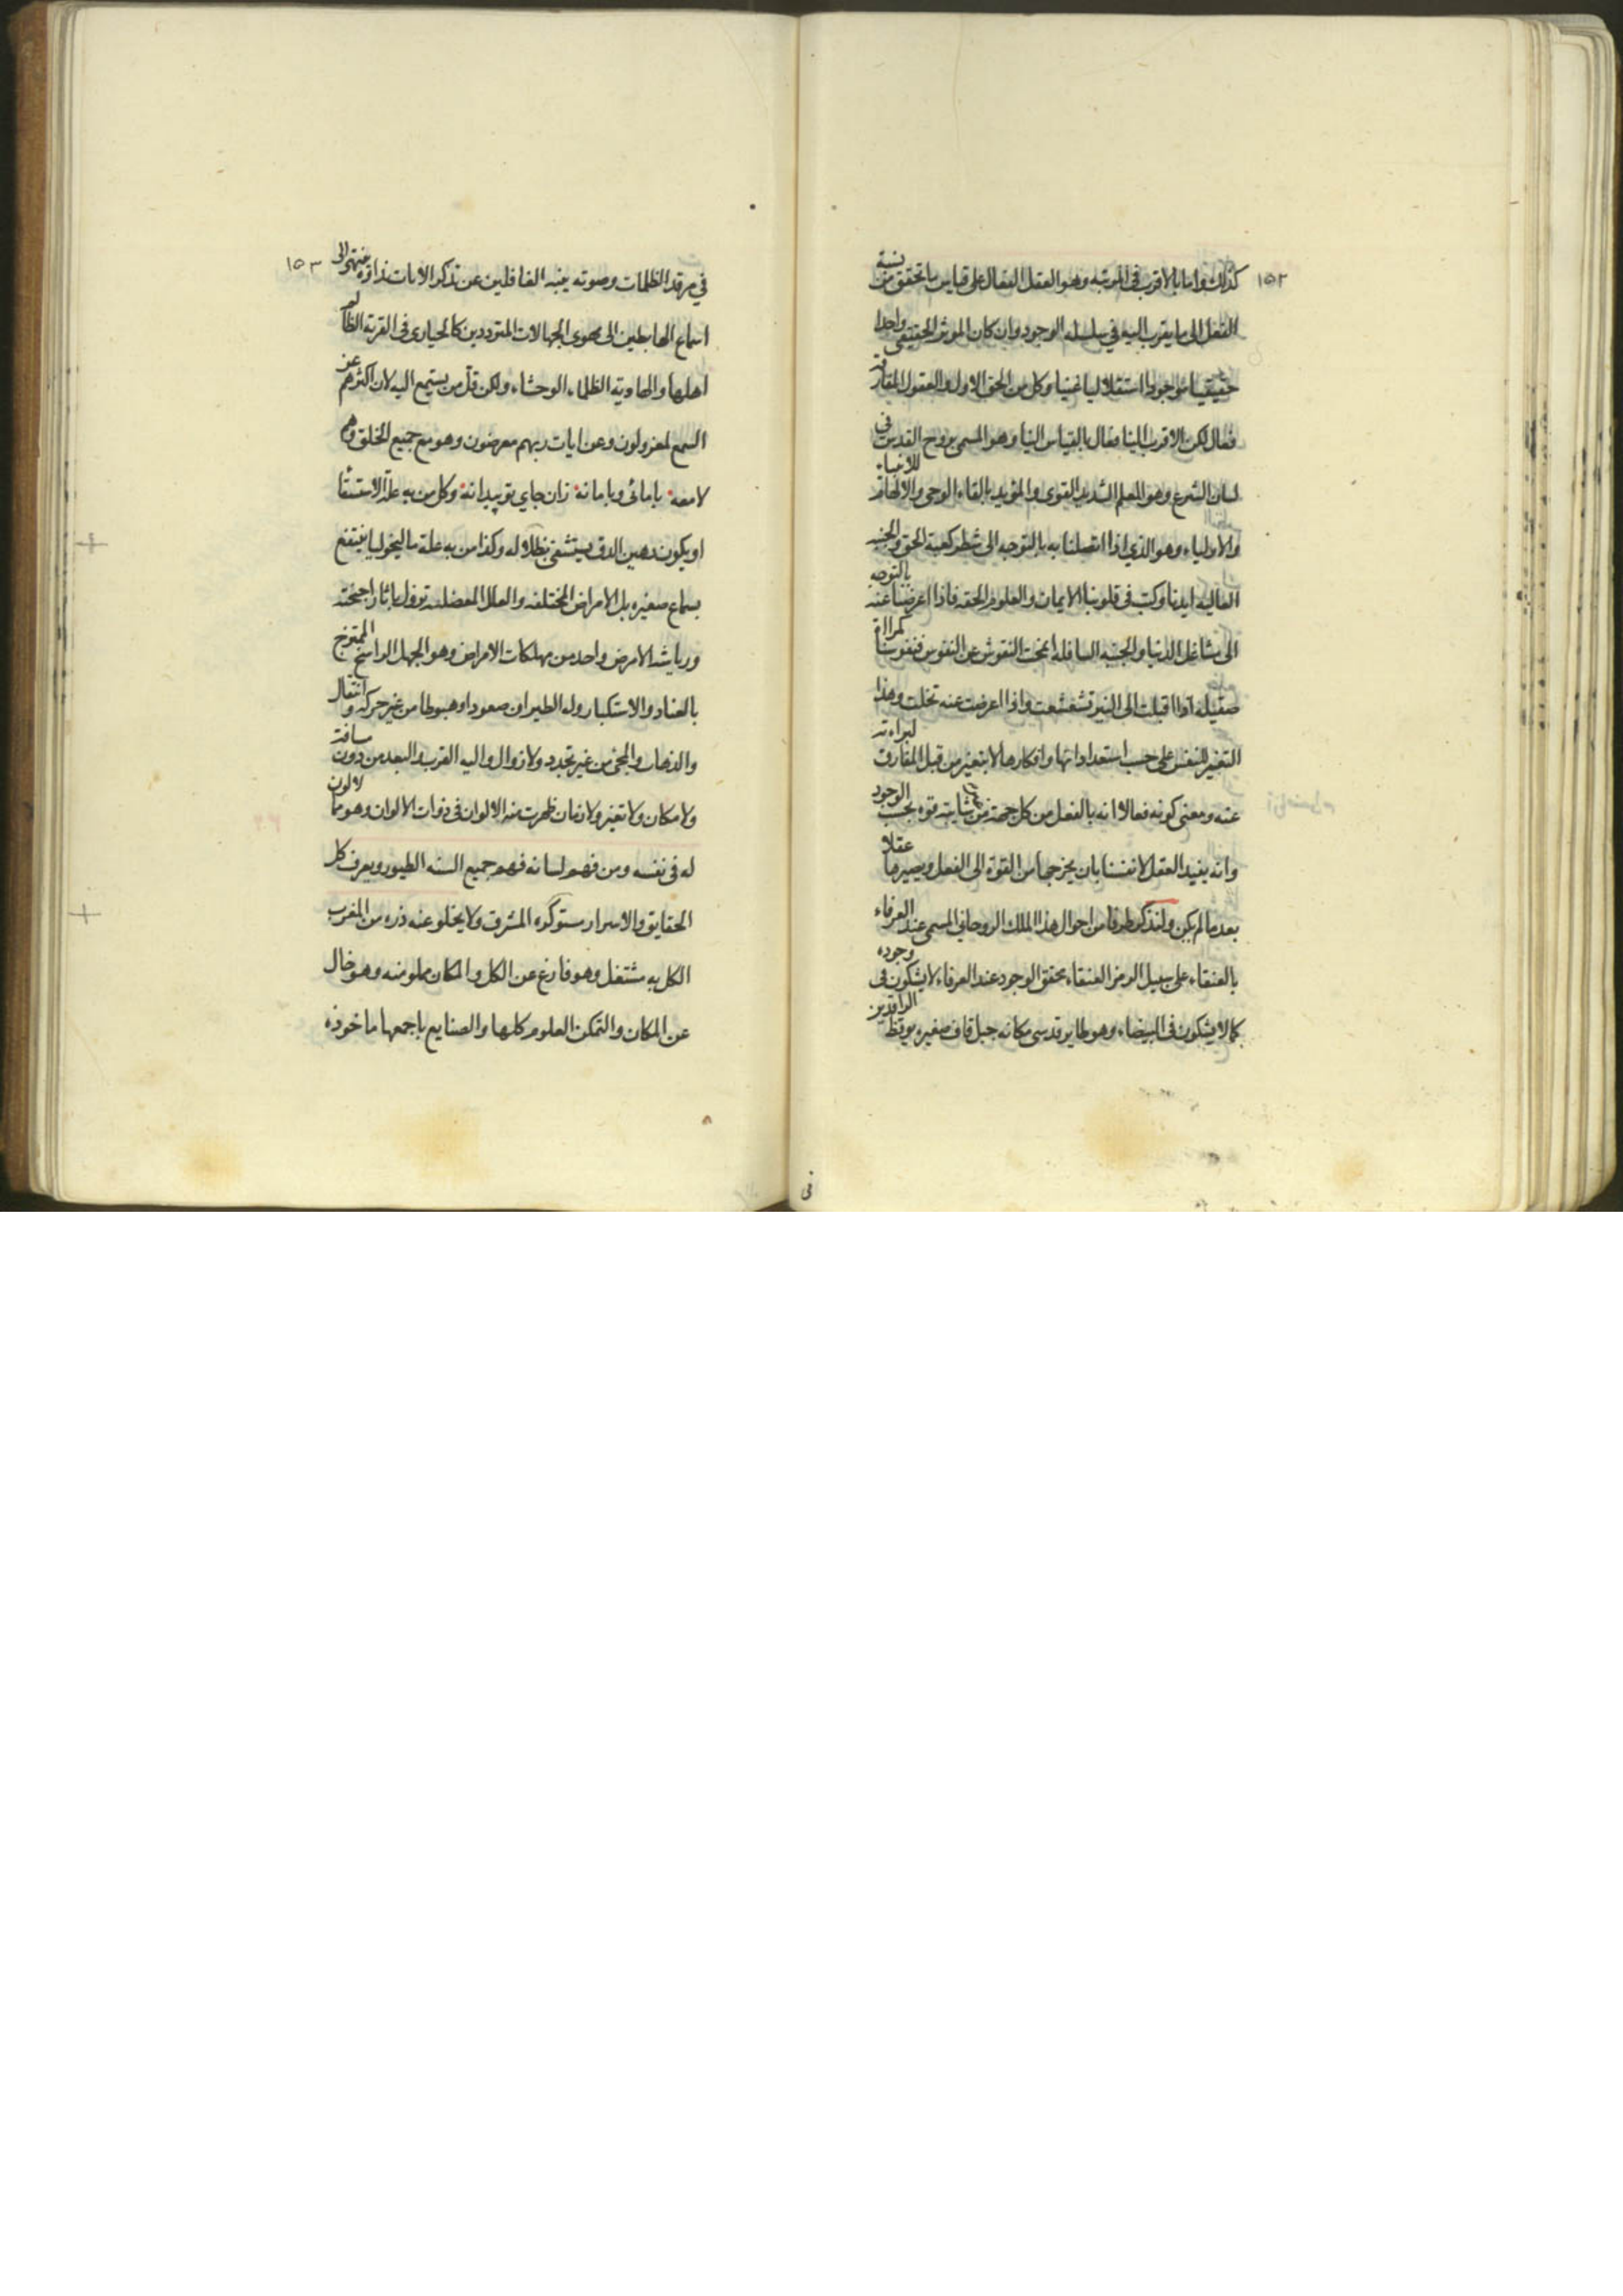 ١٥٢
كذلك واما بالاقرب في المرتبه وهو العقل الفعال على قياس ما تحقق من نسبة
الفعل الى ما يقرب اليه في سلسله الوجود وان كان الموثر الحقيقى واحدا
حقيقيا موجودا استقلاليا غنيا وكل من الحق الاول والعقول المفارقه
فعال لكن الاقرب الينا فعال بالقياس الينا وهو المسمى بروح القدس فى
لسان الشرع وهو المعلم الشديد القوى والمؤيد بالقاء الوحى والالهام للانبياء
والاولياء وهو الذي اذا اتصلنا به بالتوجه الى شطر كعبة الحق والجنبه
العاليه ايدنا وكتب فى قلوبنا الايمان والعلوم الحقه فاذا اعرضنا عنه بالتوجه
الى مشاغل الدنيا والجنبه السافله انمحت النقوش عن النفوس فنفوسنا كمراة
صقيله اذا اقبلت الى النير تشعشعت واذا اعرضت عنه تخلت وهذا
التغير للنفس على حسب استعداداتها وافكارها لا بتغير من قبل المفارق لبراءته
عنه ومعنى كونه فعالا انه بالفعل من كل جهة من شايبة قوه بحسب الوجود
وانه يفيد العقل لانفسنا بان يخرجها من القوة الى الفعل ويصيرها عقلا
بعد ما لم يكن ولنذكر طرفا من احوال هذا الملك الروحانى المسمى عند العرفاء
بالعنقاء على سبيل الرمز العنقاء محقق الوجود عند العرفاء لا يشكون فى وجوده
كما لا يشكون فى البيضاء وهو طاير قدسى مكانه جبل قاف صفيره يوقظ الراقدين
فى
١٥٣
في مرقد الظلمات وصوته ينبه الغافلين عن تذكر الايات نداؤه ينتهى الى
اسماع الهابطين الى مهوى الجهالات المترددين كالحيارى فى القرية الظالم
اهلها والهاويه الظلماء الوحشاء ولكن قل من يستمع اليه لان اكثرهم عن
السمع لمعزولون وعن ايات ربهم معرضون وهو مع جميع الخلق وهم
لا معه با مائى وبا ما نه زان جاي تو پيدا نه وكل من به علة الاستسقا
او يكون رهين الدق يستشفى بظلاله وكذا من به علة ماليخوليا ينتفع
بسماع صفيره بل الامراض المختلفه والعلل المعضله تزول باثار اجنحته
ورياشه الا مرض واحد من مهلكات الامراض وهو الجهل الراسخ الممتزج
بالعناد والاستكبار وله الطيران صعودا وهبوطا من غير حركه وانتقال
والذهاب والمجئ من غير تجدد ولا زوال واليه القرب والبعد من دون مسافة
ولا مكان ولا تغير ولا زمان ظهرت منه الالوان فى ذوات الالوان وهو مما لا لون
له فى نفسه ومن فهم لسانه فهم جميع السنه الطيور ويعرف كل
الحقايق والاسرار مستوكره المشرق ولا يخلو عنه ذره من المغرب
الكل به مشتغل وهو فارغ عن الكل والمكان مملو منه وهو خال
عن المكان والتمكن العلوم كلها والصنايع باجمعها ماخوذه